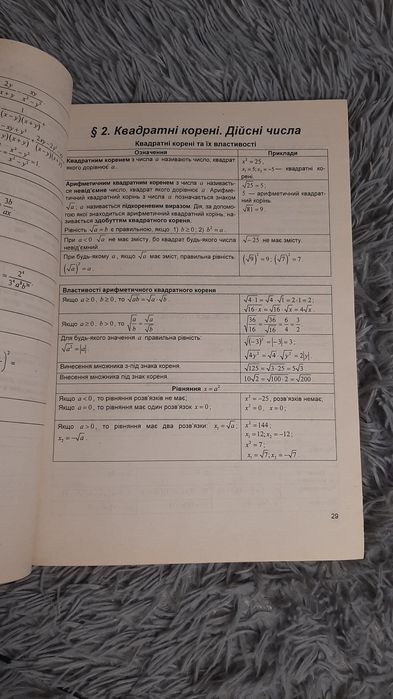 § 2. Квадратні корені. Дійсні числа
Квадратні корені та їх властивості
Означення
Приклади
Квадратним коренем з числа a називають число, квадрат
якого дорівнює a.
x² = 25,
x₁ = 5; x₂ = −5 — квадратні ко-
рені.
Арифметичним квадратним коренем з числа a називаєть-
ся невід'ємне число, квадрат якого дорівнює a. Арифме-
тичний квадратний корінь з числа a позначається знаком
√a; a називається підкореневим виразом. Дія, за допомо-
гою якої знаходиться арифметичний квадратний корінь, на-
зивається здобуттям квадратного кореня.
Рівність √a = b є правильною, якщо: 1) b ≥ 0; 2) b² = a.
√25 = 5;
5 — арифметичний квадрат-
ний корінь.
√81 = 9.
При a < 0 √a не має змісту, бо квадрат будь-якого числа
невід'ємний.
√−25 не має змісту.
При будь-якому a, якщо √a має зміст, правильна рівність:
(√a)² = a.
(√9)² = 9; (√7)² = 7.
Властивості арифметичного квадратного кореня
Якщо a ≥ 0, b ≥ 0, то √ab = √a · √b.
√4·1 = √4 · √1 = 2·1 = 2;
√16·x = √16 · √x = 4√x.
Якщо a ≥ 0, b > 0, то √(a/b) = √a/√b
√(36/16) = √36/√16 = 6/4 = 3/2
Для будь-якого значення a правильна рівність:
√a² = |a|.
√(−3)² = |−3| = 3;
√4y² = √4 · √y² = 2|y|.
Винесення множника з-під знака кореня.
√125 = √3·25 = 5√3
Внесення множника під знак кореня
10√2 = √100·2 = √200
Рівняння x = a²
Якщо a < 0, то рівняння розв'язків не має;
Якщо a = 0, то рівняння має один розв'язок x = 0;
x² = −25, розв'язків немає;
x² = 0, x = 0;
Якщо a > 0, то рівняння має два розв'язки: x₁ = √a;
x₂ = −√a.
x² = 144;
x₁ = 12; x₂ = −12;
x² = 7;
x₁ = √7; x₂ = −√7
29